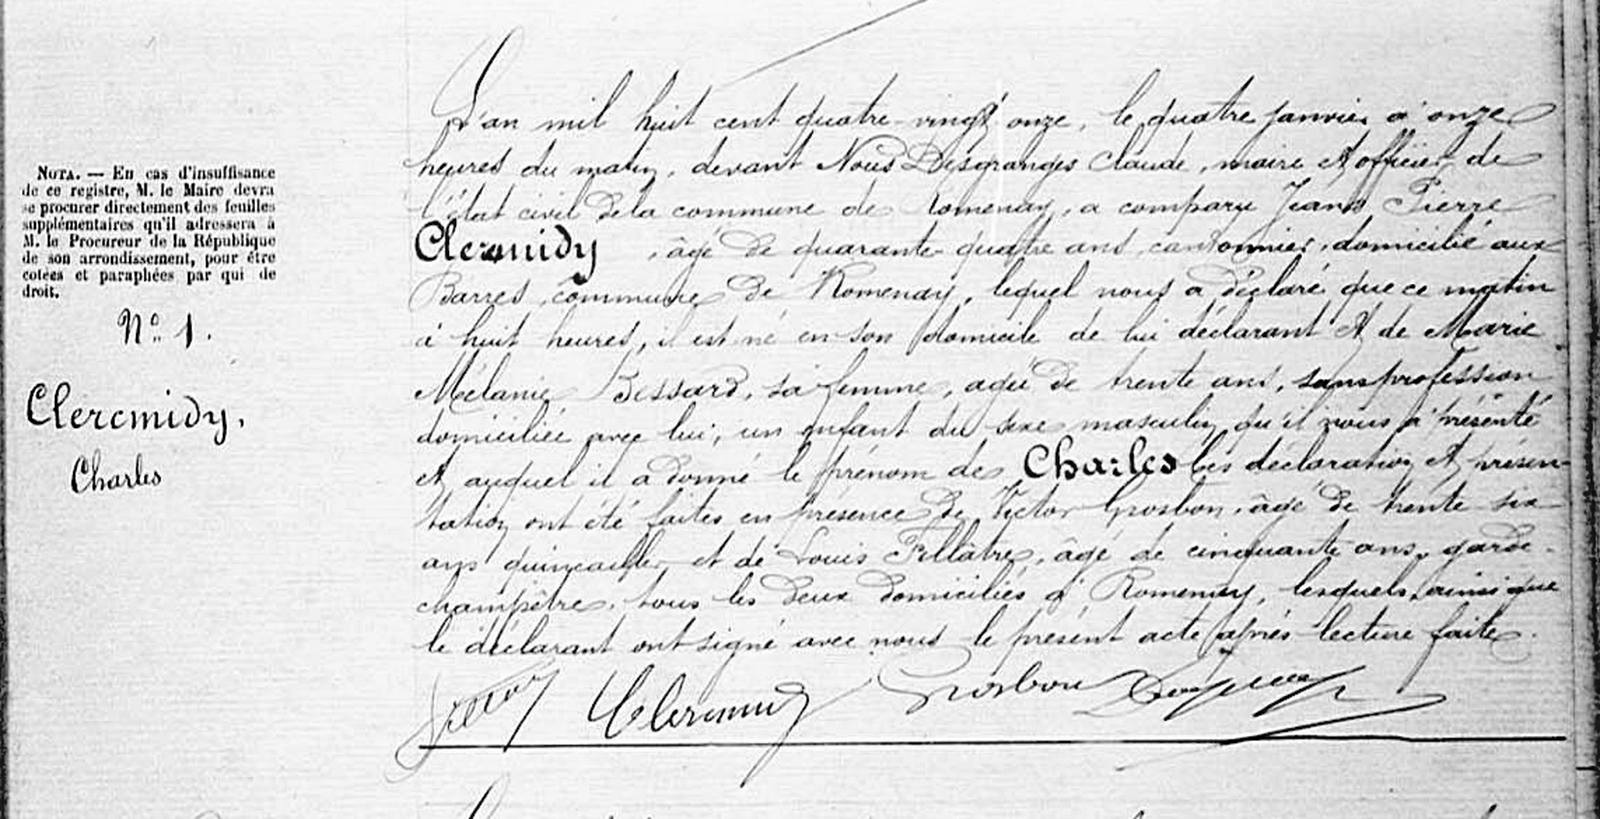 Nota. — En cas d'insuffisance
de ce registre, M. le Maire devra
se procurer directement des feuilles
supplémentaires qu'il adressera à
M. le Procureur de la République
de son arrondissement, pour être
cotées et paraphées par qui de
droit.
N° 1.
Clercmidy,
Charles
L'an mil huit cent quatre-vingt onze, le quatre janvier à onze
heures du matin, devant Nous Desgranges Claude, maire et officier de
l'état civil de la commune de Romenay, a comparu Jean Pierre
Clercmidy, âgé de quarante-quatre ans, cantonnier, domicilié aux
Barres, commune de Romenay, lequel nous a déclaré que ce matin
à huit heures, il est né en son domicile de lui déclarant et de Marie
Mélanie Bessard, sa femme, agée de trente ans, sans profession
domiciliée avec lui, un enfant du sexe masculin qu'il nous a présenté
et auquel il a donné le prénom de Charles les déclaration et présen-
tation ont été faites en présence de Victor Grosbon, âgé de trente-six
ans quincailler et de Louis Fillâtre, âgé de cinquante ans, garde-
champêtre, tous les deux domiciliés à Romenay, lesquels, ainsi que
le déclarant ont signé avec nous le présent acte après lecture faite.
Clercmidy Grosbon